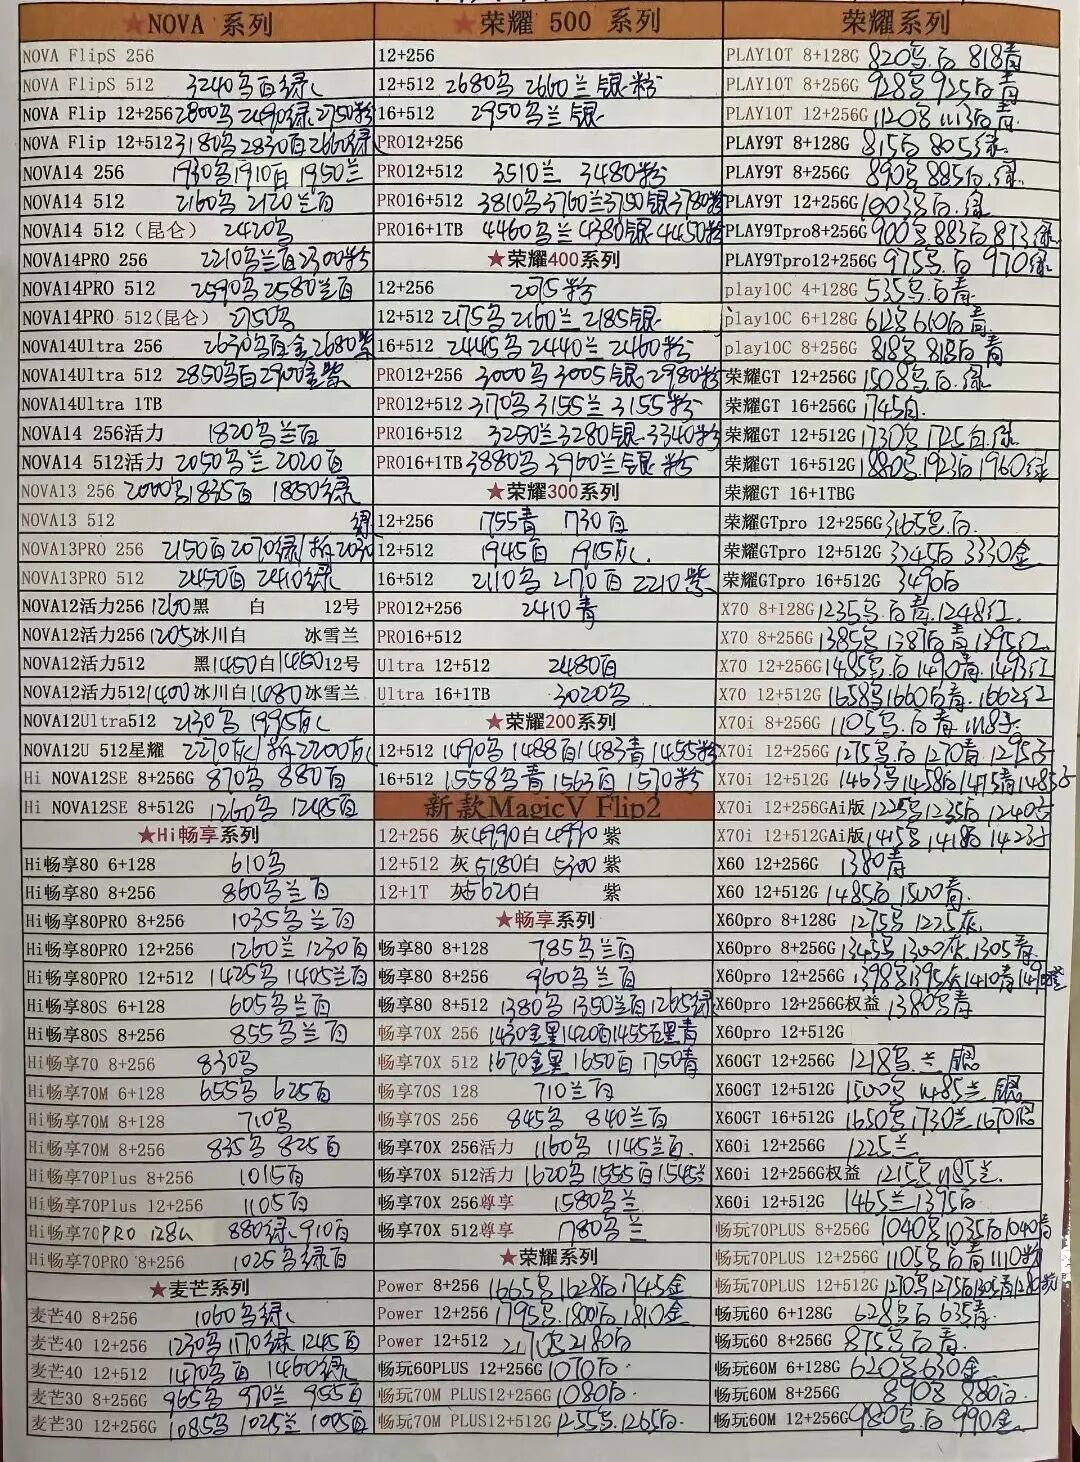 ★NOVA 系列
NOVA FlipS 256
NOVA FlipS 512 3240乌百绿
NOVA Flip 12+256 2800乌2490绿2750粉
NOVA Flip 12+512 3180乌2830百2660绿
NOVA14 256 1930乌1910百 1950兰
NOVA14 512 2160乌 2120兰百
NOVA14 512（昆仑） 2420乌
NOVA14PRO 256 2210乌兰百2300粉
NOVA14PRO 512 2590乌2580兰百
NOVA14PRO 512(昆仑) 2750乌
NOVA14Ultra 256 2630乌百金2680紫
NOVA14Ultra 512 2850乌百2900金紫
NOVA14Ultra 1TB
NOVA14 256活力 1820乌兰百
NOVA14 512活力 2050乌兰2020百
NOVA13 256 2000乌1835百 1850绿
NOVA13 512 绿
NOVA13PRO 256 2150百2070绿
NOVA13PRO 512 2450百2410绿
NOVA12活力256 1260黑 白 12号
NOVA12活力256 1205冰川白 冰雪兰
NOVA12活力512 黑1450白1450 12号
NOVA12活力512 1400冰川白1080冰雪兰
NOVA12Ultra512 2130乌 1995灰
NOVA12U 512星耀 2270灰
Hi NOVA12SE 8+256G 870乌 880百
Hi NOVA12SE 8+512G 1260乌 1245百
★Hi畅享系列
Hi畅享80 6+128 610乌
Hi畅享80 8+256 860乌兰百
Hi畅享80PRO 8+256 1035乌兰百
Hi畅享80PRO 12+256 1260兰 1230百
Hi畅享80PRO 12+512 1425乌 1405兰百
Hi畅享80S 6+128 605乌兰百
Hi畅享80S 8+256 855乌兰百
Hi畅享70 8+256 830乌
Hi畅享70M 6+128 655乌 625百
Hi畅享70M 8+128 710乌
Hi畅享70M 8+256 835乌 825百
Hi畅享70Plus 8+256 1015百
Hi畅享70Plus 12+256 1105百
Hi畅享70PRO 128G 880绿 910百
Hi畅享70PRO 8+256 1025乌绿百
★麦芒系列
麦芒40 8+256 1060乌绿
麦芒40 12+256 1230乌1170绿 1245百
麦芒40 12+512 1470乌百 1460绿
麦芒30 8+256G 965乌 970兰 955百
麦芒30 12+256G 1085乌 1025兰 1005百
★荣耀 500 系列
12+256
12+512 2680乌 2660兰银粉
16+512 2950乌兰银
PRO12+256
PRO12+512 3510兰 3480粉
PRO16+512 3810乌3760兰3750银3780粉
PRO16+1TB 4460乌兰4380银4450粉
★荣耀400系列
12+256 2075粉
12+512 2175乌2160兰2185银
16+512 2445乌2440兰2460粉
PRO12+256 3000乌3005银2980粉
PRO12+512 3170乌3155兰3155粉
PRO16+512 3250兰3280银3340粉
PRO16+1TB 3880乌3960兰银粉
★荣耀300系列
12+256 1755青 1730百
12+512 1945百 1915灰
16+512 2110乌 2170百 2210紫
PRO12+256 2410青
PRO16+512
Ultra 12+512 2480百
Ultra 16+1TB 3020乌
★荣耀200系列
12+512 1490乌1488百1483青1455粉
16+512 1558乌青 1563百 1570粉
新款MagicV Flip2
12+256 灰4990白 4990 紫
12+512 灰5180白 5300 紫
12+1T 灰5620白 紫
★畅享系列
畅享80 8+128 785乌兰百
畅享80 8+256 960乌兰百
畅享80 8+512 1380乌1350兰百1265绿
畅享70X 256 1430金黑1420百1455青
畅享70X 512 1670金黑 1650百 1750青
畅享70S 128 710兰百
畅享70S 256 845乌 840兰百
畅享70X 256活力 1160乌 1145兰百
畅享70X 512活力 1620乌1555百1545兰
畅享70X 256尊享 1580乌兰
畅享70X 512尊享 1780乌兰
★荣耀系列
Power 8+256 1665乌1628百1745金
Power 12+256 1795乌1800百1810金
Power 12+512 2170乌2180百
畅玩60PLUS 12+256G 1070百
畅玩70M PLUS12+256G 1080百
畅玩70M PLUS12+512G 1255乌1265百
荣耀系列
PLAY10T 8+128G 820乌百 818青
PLAY10T 8+256G 928乌925百青
PLAY10T 12+256G 1120乌1113百青
PLAY9T 8+128G 815百 805绿
PLAY9T 8+256G 890乌885百绿
PLAY9T 12+256G 1003乌百绿
PLAY9Tpro8+256G 900乌883百873绿
PLAY9Tpro12+256G 975乌百 970绿
play10C 4+128G 535乌百青
play10C 6+128G 612乌610百青
play10C 8+256G 818乌818百青
荣耀GT 12+256G 1508乌百绿
荣耀GT 16+256G 1745白
荣耀GT 12+512G 1730乌1725白绿
荣耀GT 16+512G 1880乌1923百1960绿
荣耀GT 16+1TBG
荣耀GTpro 12+256G 3165乌百
荣耀GTpro 12+512G 3345百3330金
荣耀GTpro 16+512G 3490百
X70 8+128G 1235乌百青1248红
X70 8+256G 1385乌1387百青1395红
X70 12+256G 1485乌百1490青1493红
X70 12+512G 1658乌1660百青1662红
X70i 8+256G 1105乌百青
X70i 12+256G 1275乌百1270青1295
X70i 12+512G 1463乌1458百1475青1485
X70i 12+256GAi版 1225乌1235百1240
X70i 12+512GAi版 1415乌1418百1423
X60 12+256G 1380青
X60 12+512G 1485百1500青
X60pro 8+128G 1275乌 1225灰
X60pro 8+256G 1345乌1300灰1305青
X60pro 12+256G 1398乌1395灰1410青
X60pro 12+256G权益 1380乌青
X60pro 12+512G
X60GT 12+256G 1218乌兰银
X60GT 12+512G 1500乌1485兰银
X60GT 16+512G 1650乌1730兰1670银
X60i 12+256G 1225兰
X60i 12+256G权益 1215乌1185兰
X60i 12+512G 1465兰1395百
畅玩70PLUS 8+256G 1040乌1035百1040青
畅玩70PLUS 12+256G 1105乌百青1110粉
畅玩70PLUS 12+512G 1270乌1275百1305青1280粉
畅玩60 6+128G 628乌百635青
畅玩60 8+256G 875乌百青
畅玩60M 6+128G 620乌630金
畅玩60M 8+256G 890乌 880百
畅玩60M 12+256G 980乌百 990金